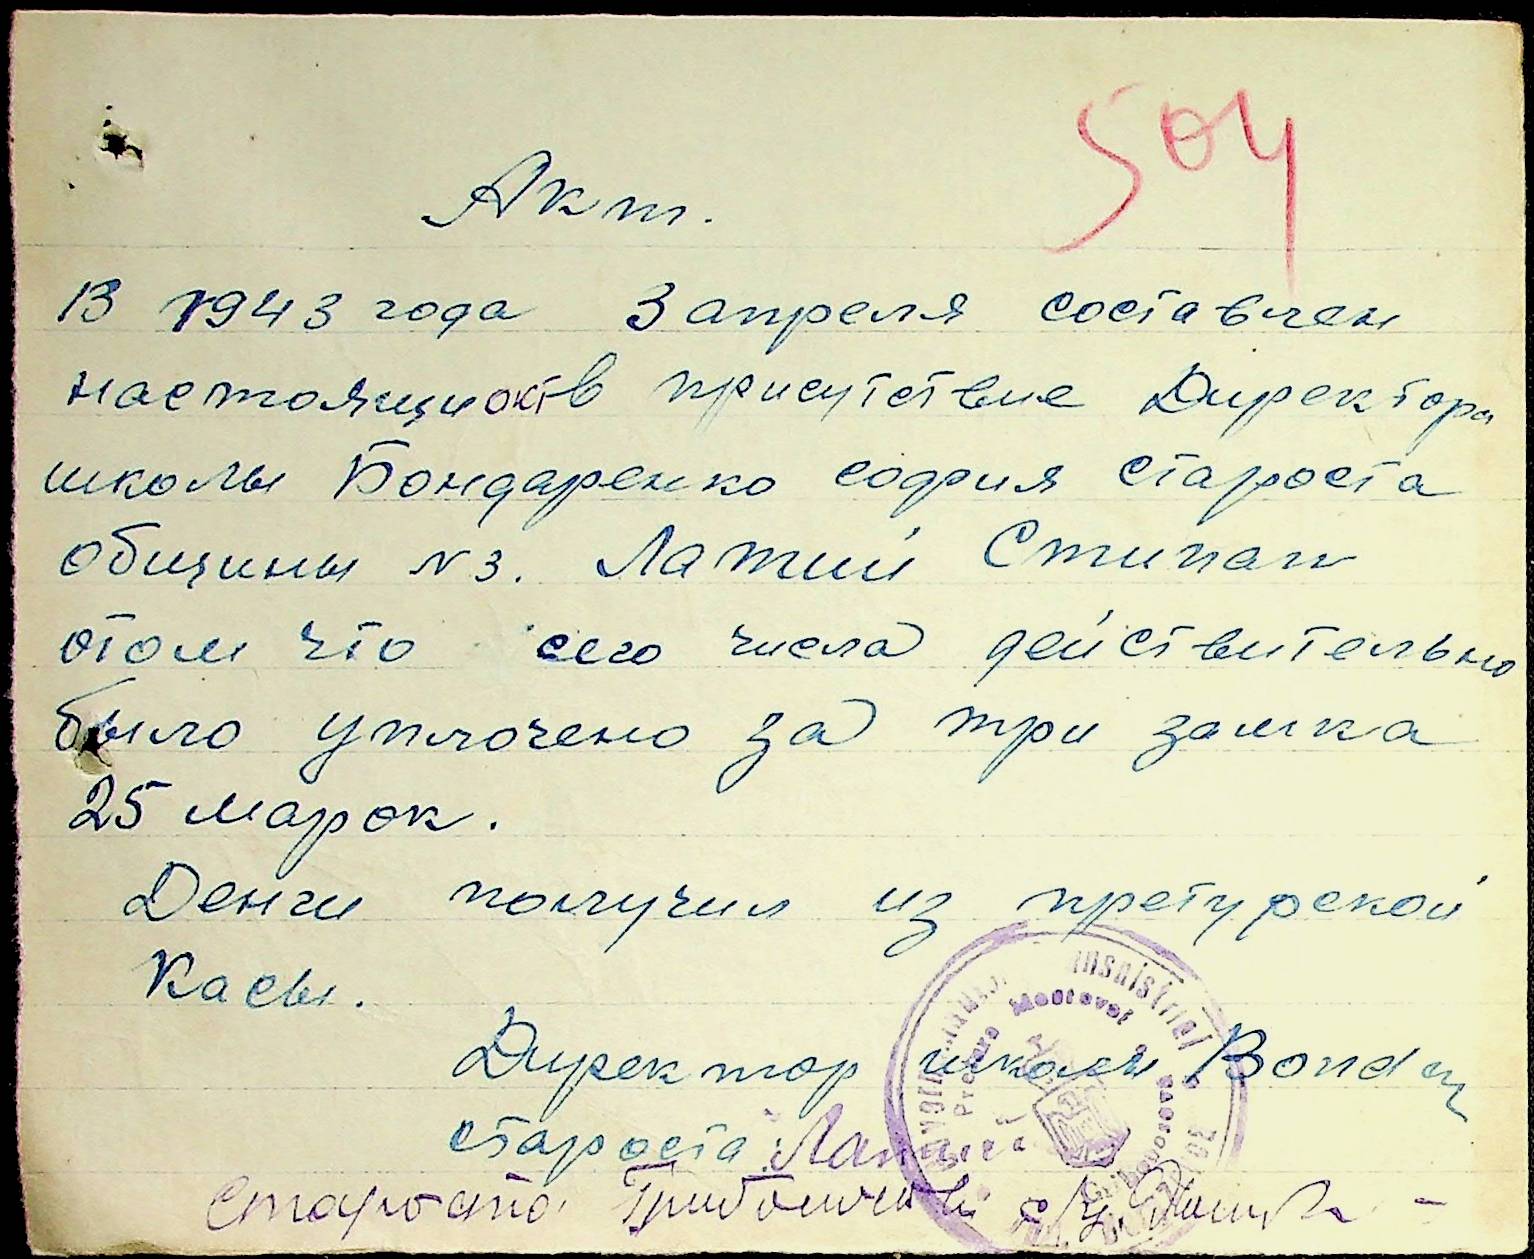 504
Акт.
В 1943 года 3 апреля составлен
настоящи окт в присутствие Директора
школы Бондаренко софия староста
общины N 3. Латий Стипан
отом что сего числа действительно
было уплочено за три замка
25 марок.
Денги получил из претурской
Касы.
Директор школы Bondar
староста Латий
Староста